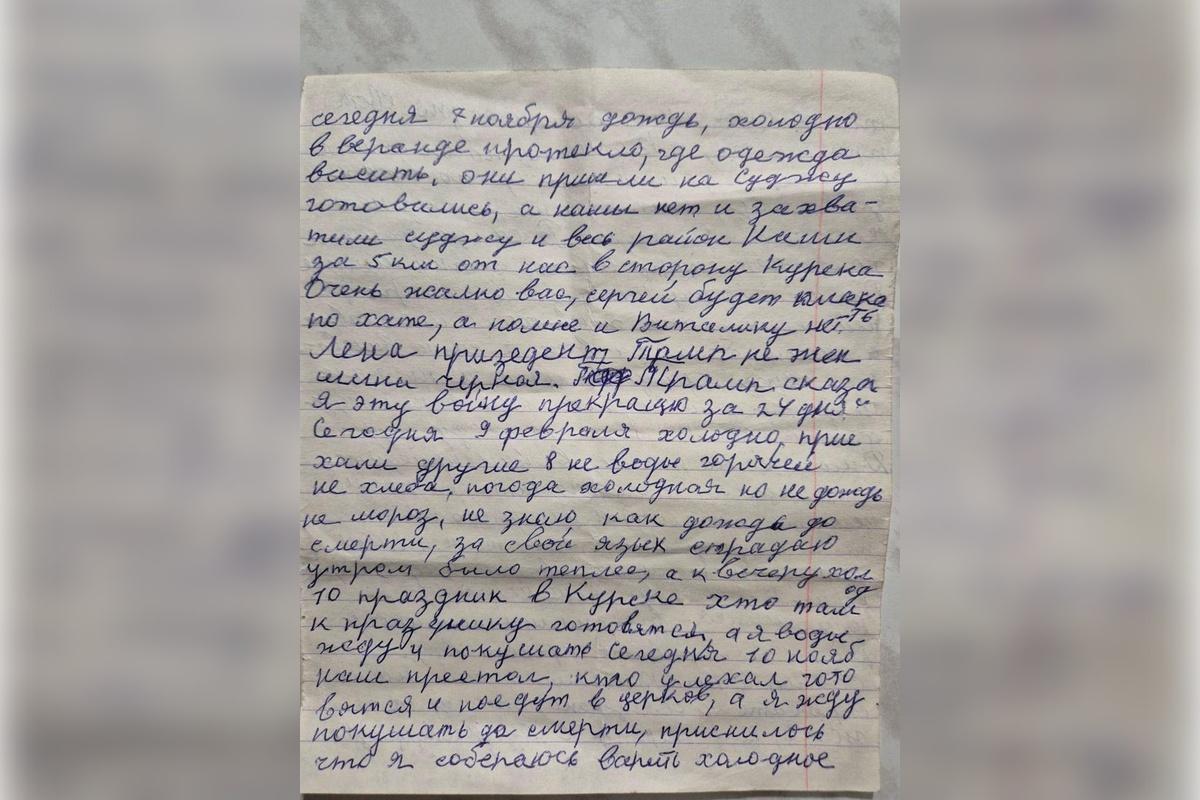 сегедня 7 ноября дождь, холодно
в веранде протекло, где одежда
висить. они пришли на Суджу
готовились, а наши нет и захва-
тили суджу и весь район Наши
за 5 км от нас в сторону Курска
Очень жално вас, сергей будет плака
ть
по хате, а помне и Виталику нет.
Лена призедент Трамп не жен
щина черная. Трамп сказа
я эту войну прекращю за 24 дня"
Сегодня 9 февраля холодно, прие
хали другие 8 не воды горячей
не хлеба, погода холодная но не дождь
не мороз, не знаю как дождь до
смерти, за свой язык страдаю
утром било теплее, а к вечеру хол
од
10 праздник в Курске хто там
к празднику готовятся, а я воды
жду и покушать Сегедня 10 нояб
наш престол, кто уехал гото
вятся и поедут в церков, а я жду
покушать до смерти, приснилось
что я собераюсь варить холодное